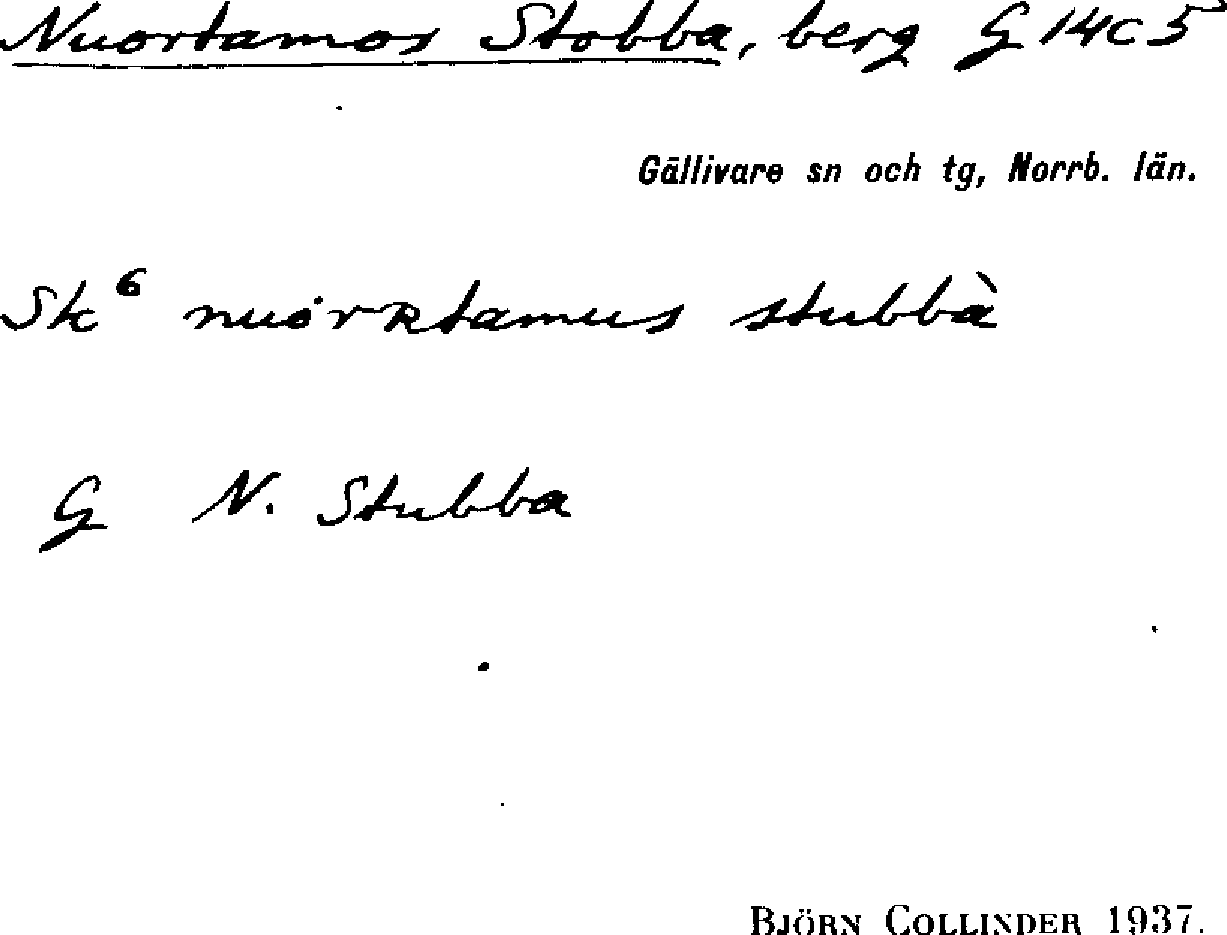 Nuortamos Stobba, berg G 14c5
Gällivare sn och tg, Norrb. län.
Sk⁶ nuȯrʀtamus stubbà
G N. Stubba
BJÖRN COLLINDER 1937.